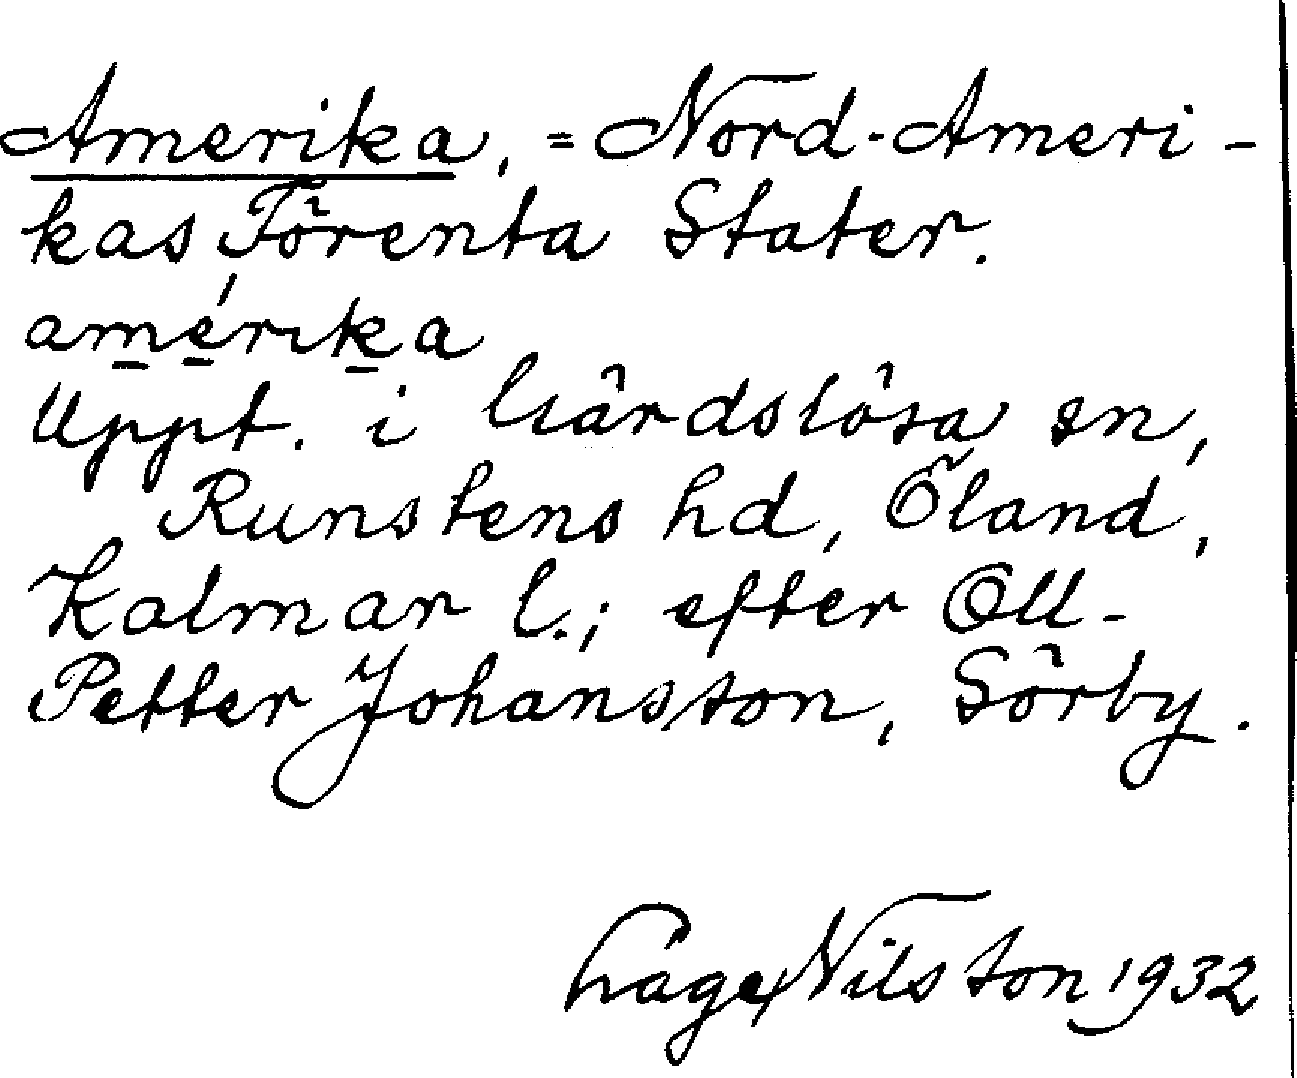 Amerika, = Nord-Ameri-
kas Förenta Stater.
amérika
Uppt. i Gärdslösa sn,
Runstens hd, Öland,
Kalmar l.; efter Oll-
Petter Johansson, Sörby.
Nilsson 1932